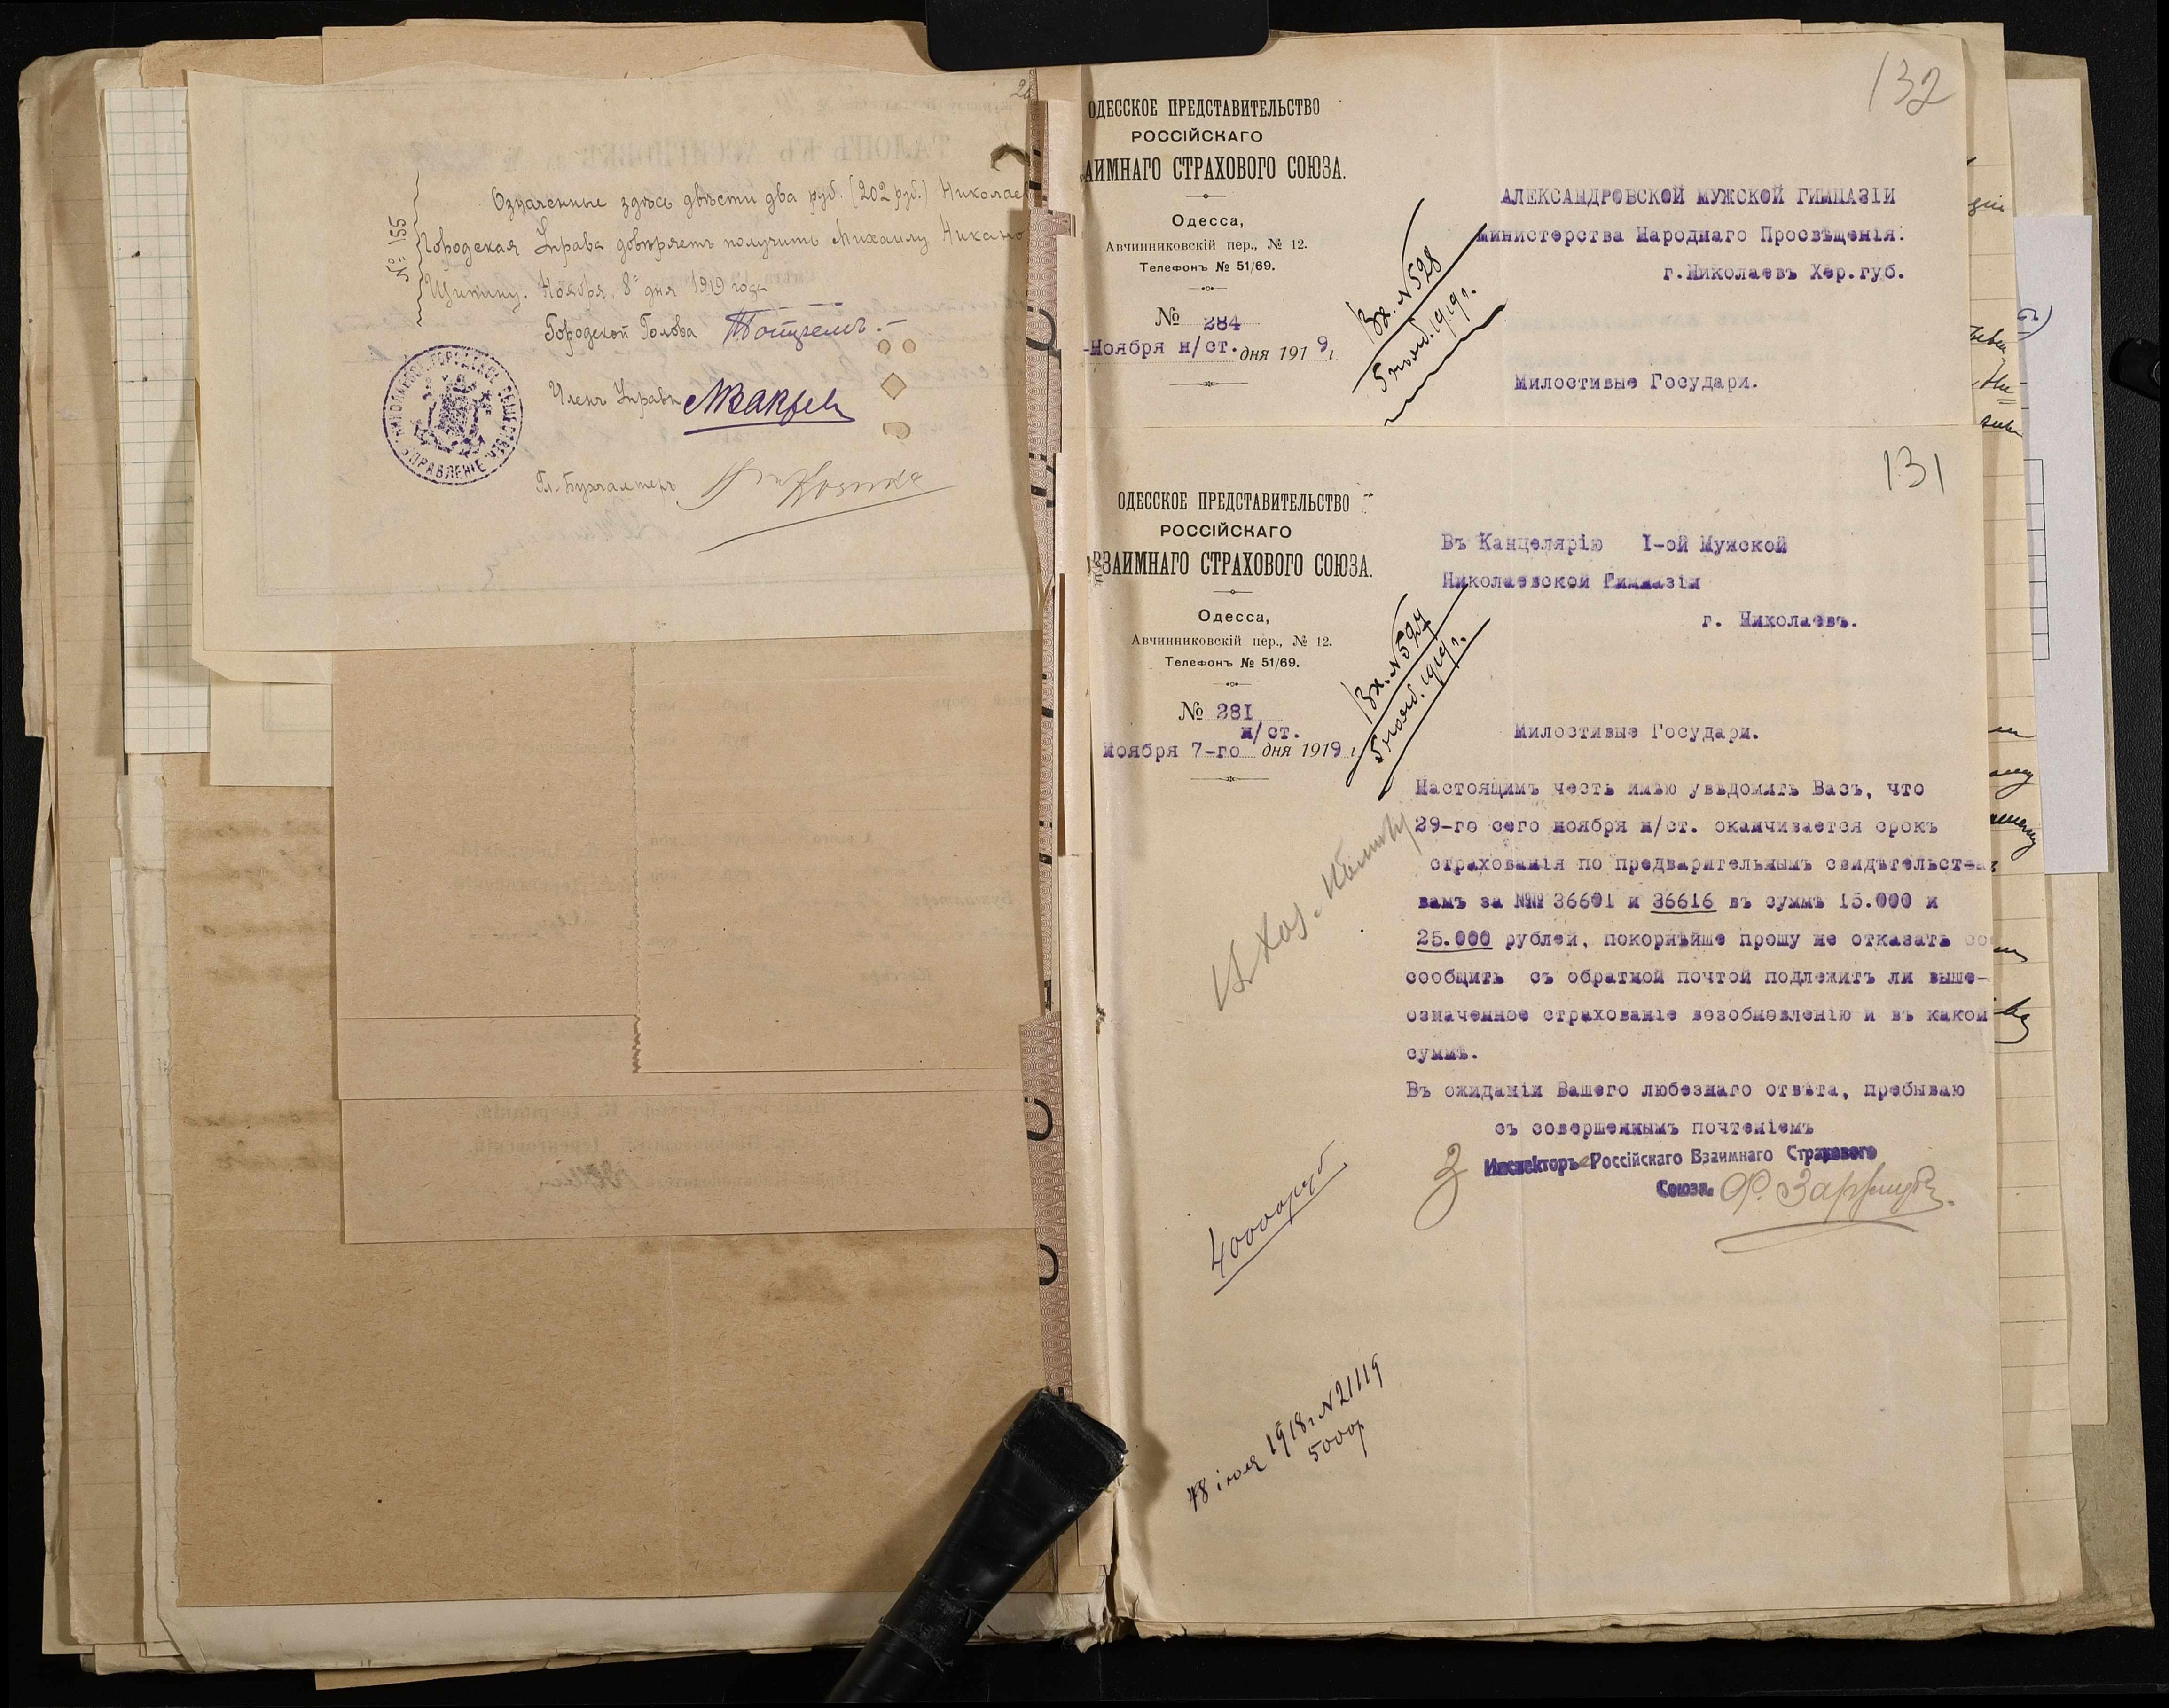 Означенные здѣсь двѣсти два руб. (202 руб.) Николаев
Городская Управа довѣряетъ получить Михаилу Никано
Щитину. Ноября 8 дня 1919 года
№ 155
Городской Голова
Членъ Управы
Гл. Бухгалтеръ
НИКОЛАЕВСКОЕ ГОРОДСКОЕ ОБЩЕСТВ. УПРАВЛЕНІЕ
132
ОДЕССКОЕ ПРЕДСТАВИТЕЛЬСТВО
РОССІЙСКАГО
АИМНАГО СТРАХОВОГО СОЮЗА.
Одесса,
Авчинниковскій пер., № 12.
Телефонъ № 51/69.
№ 284
-Ноября н/ст. дня 1919 г.
Вх. № 598
5 нояб. 1919 г.
АЛЕКСАНДРОВСКОЙ МУЖСКОЙ ГИМНАЗІИ
Министерства Народнаго Просвѣщенія.
г.Николаевъ Хер.губ.
Милостивые Государи.
131
ОДЕССКОЕ ПРЕДСТАВИТЕЛЬСТВО
РОССІЙСКАГО
ВЗАИМНАГО СТРАХОВОГО СОЮЗА.
Одесса,
Авчинниковскій пер., № 12.
Телефонъ № 51/69.
№ 281
н/ст.
Ноября 7-го дня 1919 г.
Вх. № 597
5 нояб. 1919 г.
Въ Канцелярію I-ой Мужской
Николаевской Гимназіи
г. Николаевъ.
Милостивые Государи.
Настоящимъ честь имѣю увѣдомить Васъ, что
29-го сего ноября н/ст. оканчивается срокъ
страхованія по предварительнымъ свидѣтельст-
вамъ за №№ 36601 и 36616 въ суммѣ 15.000 и
25.000 рублей, покорнѣйше прошу не отказать со
сообщить съ обратной почтой подлежитъ ли выше-
означенное страхованіе возобновленію и въ какой
суммѣ.
Въ ожиданіи Вашего любезнаго отвѣта, пребываю
съ совершеннымъ почтеніемъ
Инспекторъ Россійскаго Взаимнаго Страхового
Союза.
40000 руб
18 іюля 1918 г. № 21119
5000 р